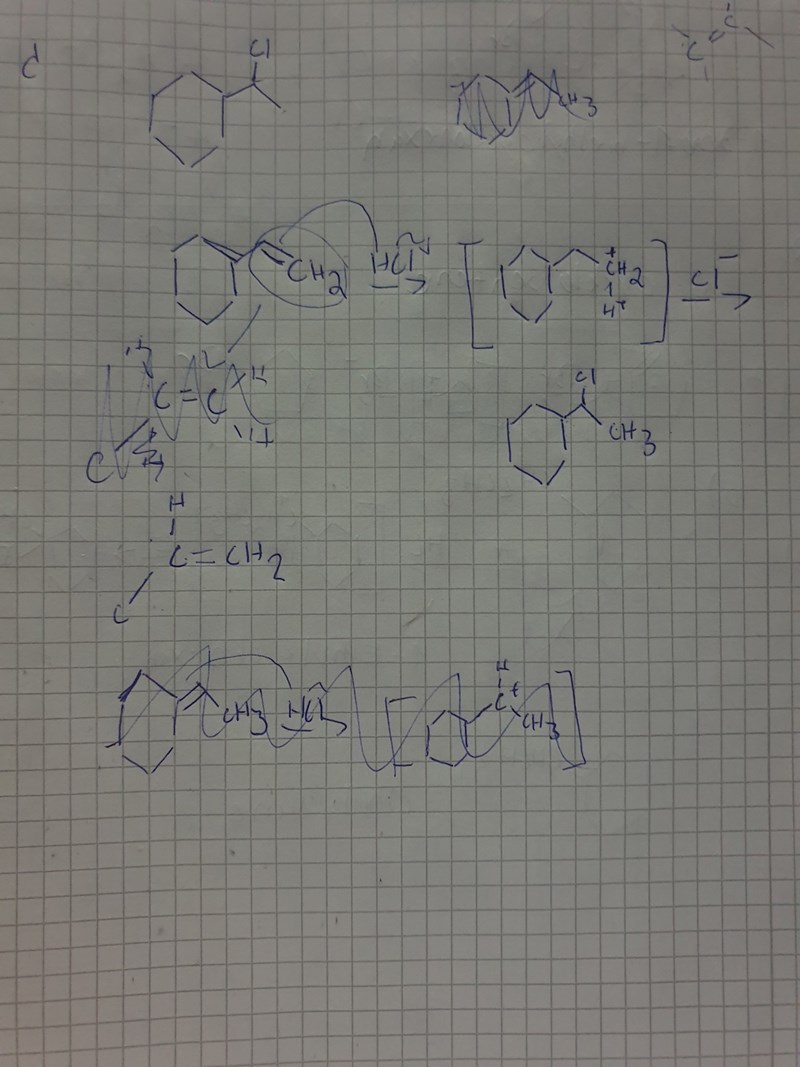 d
Cl
C
C
CH3
CH2
HCl
+
CH2
H+
Cl-
C=C
H
H
C
Cl
CH3
H
C=CH2
C
CH3
HCl
H
C+
CH3